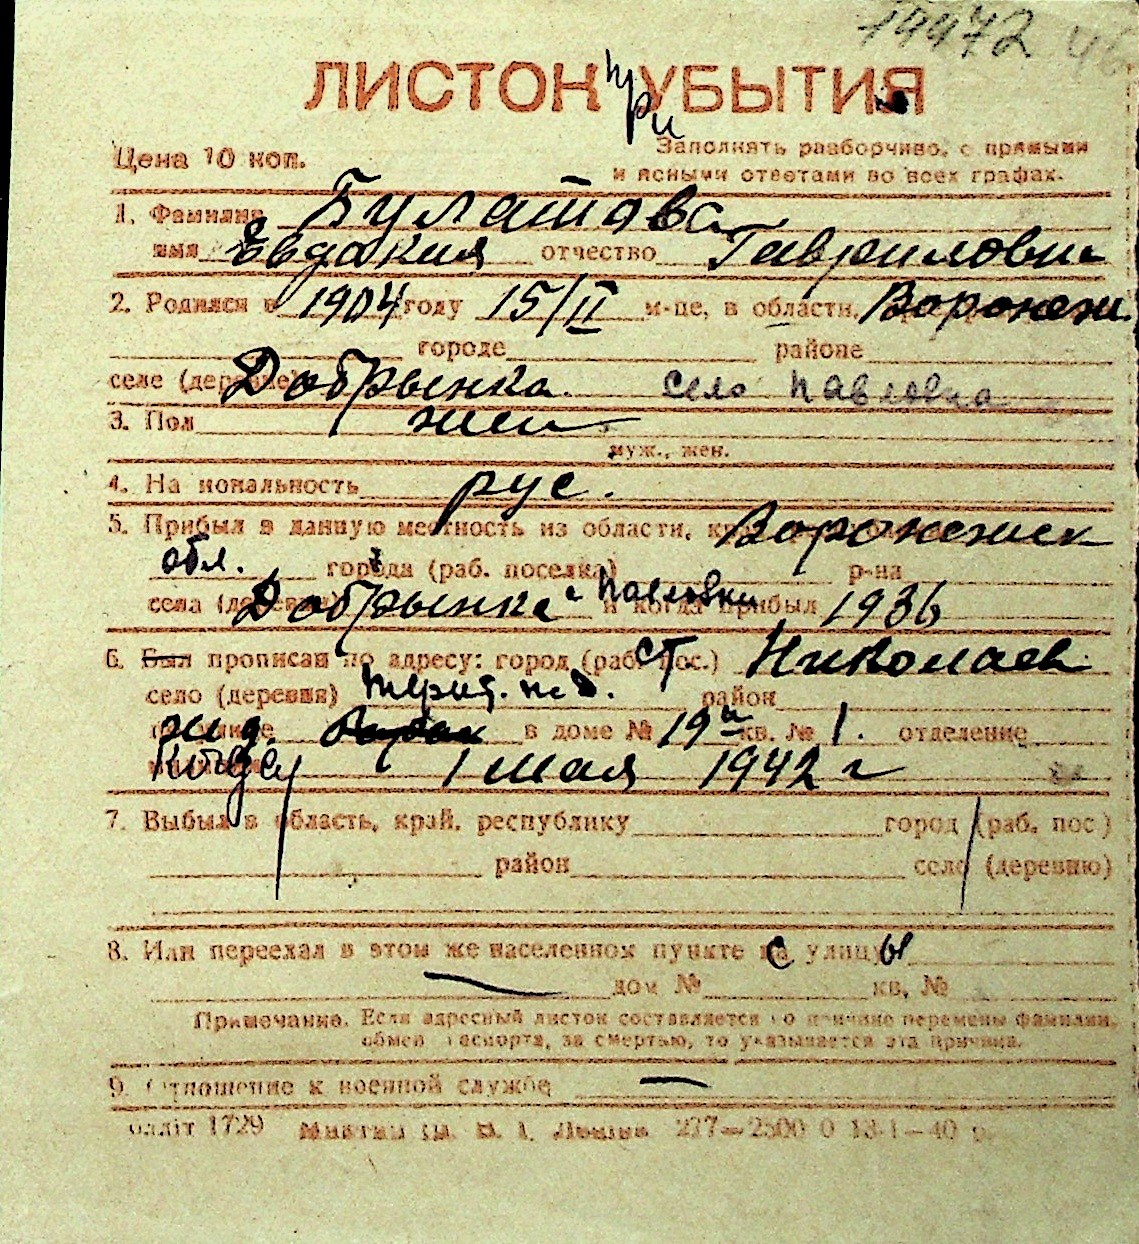 19472 46
ЛИСТОК при УБЫТИЯ
Цена 10 коп.
Заполнять разборчиво, с прямыми
и ясными ответами во всех графах.
1. Фамилия Булатова
имя Евдакия отчество Гавриловна
2. Родился в 1904 году 15/II м-це, в области, Воронеж.
городе районе
селе (деревне) Добрынка. село Павловка
3. Пол жен
муж., жен.
4. На иональность рус.
5. Прибыл в данную местность из области, Воронежск
обл. города (раб. поселка) р-на
села Добрынка с Павловки и когда прибыл 1936
6. Был прописан по адресу: город (раб. пос.) ст. Николаев
село (деревня) терит. ж.д. район
жид. в доме № 19 кв. № 1. отделение
1 мая 1942 г
7. Выбыл в область, край, республику город (раб. пос)
район село (деревню)
8. Или переехал в этом же населенном пункте с улицы
дом № кв. №
Примечание. Если адресный листок составляется по причине перемены фамилии,
обмен паспорта, за смертью, то указывается эта причина.
9. Отношение к военной службе —
олліт 1729 277—2500 0 13-1—40 р.